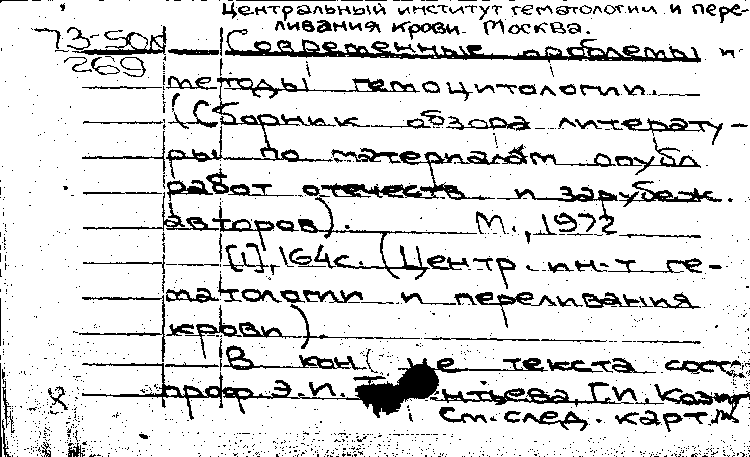 Центральный институт гематологии и пере-
ливания крови. Москва.
73-50к Современные проблемы и
269
методы гемоцитологии.
(Сборник обзора литерату-
ры по материалам опубл
работ отечеств. и заруб еж.
авторов). М., 1972
[1], 164с. (Центр. ин-т ге-
матологии и переливания
крови).
В кон не текста сост:
проф. Э.И. Г.И. Козинец
См. след. карт.